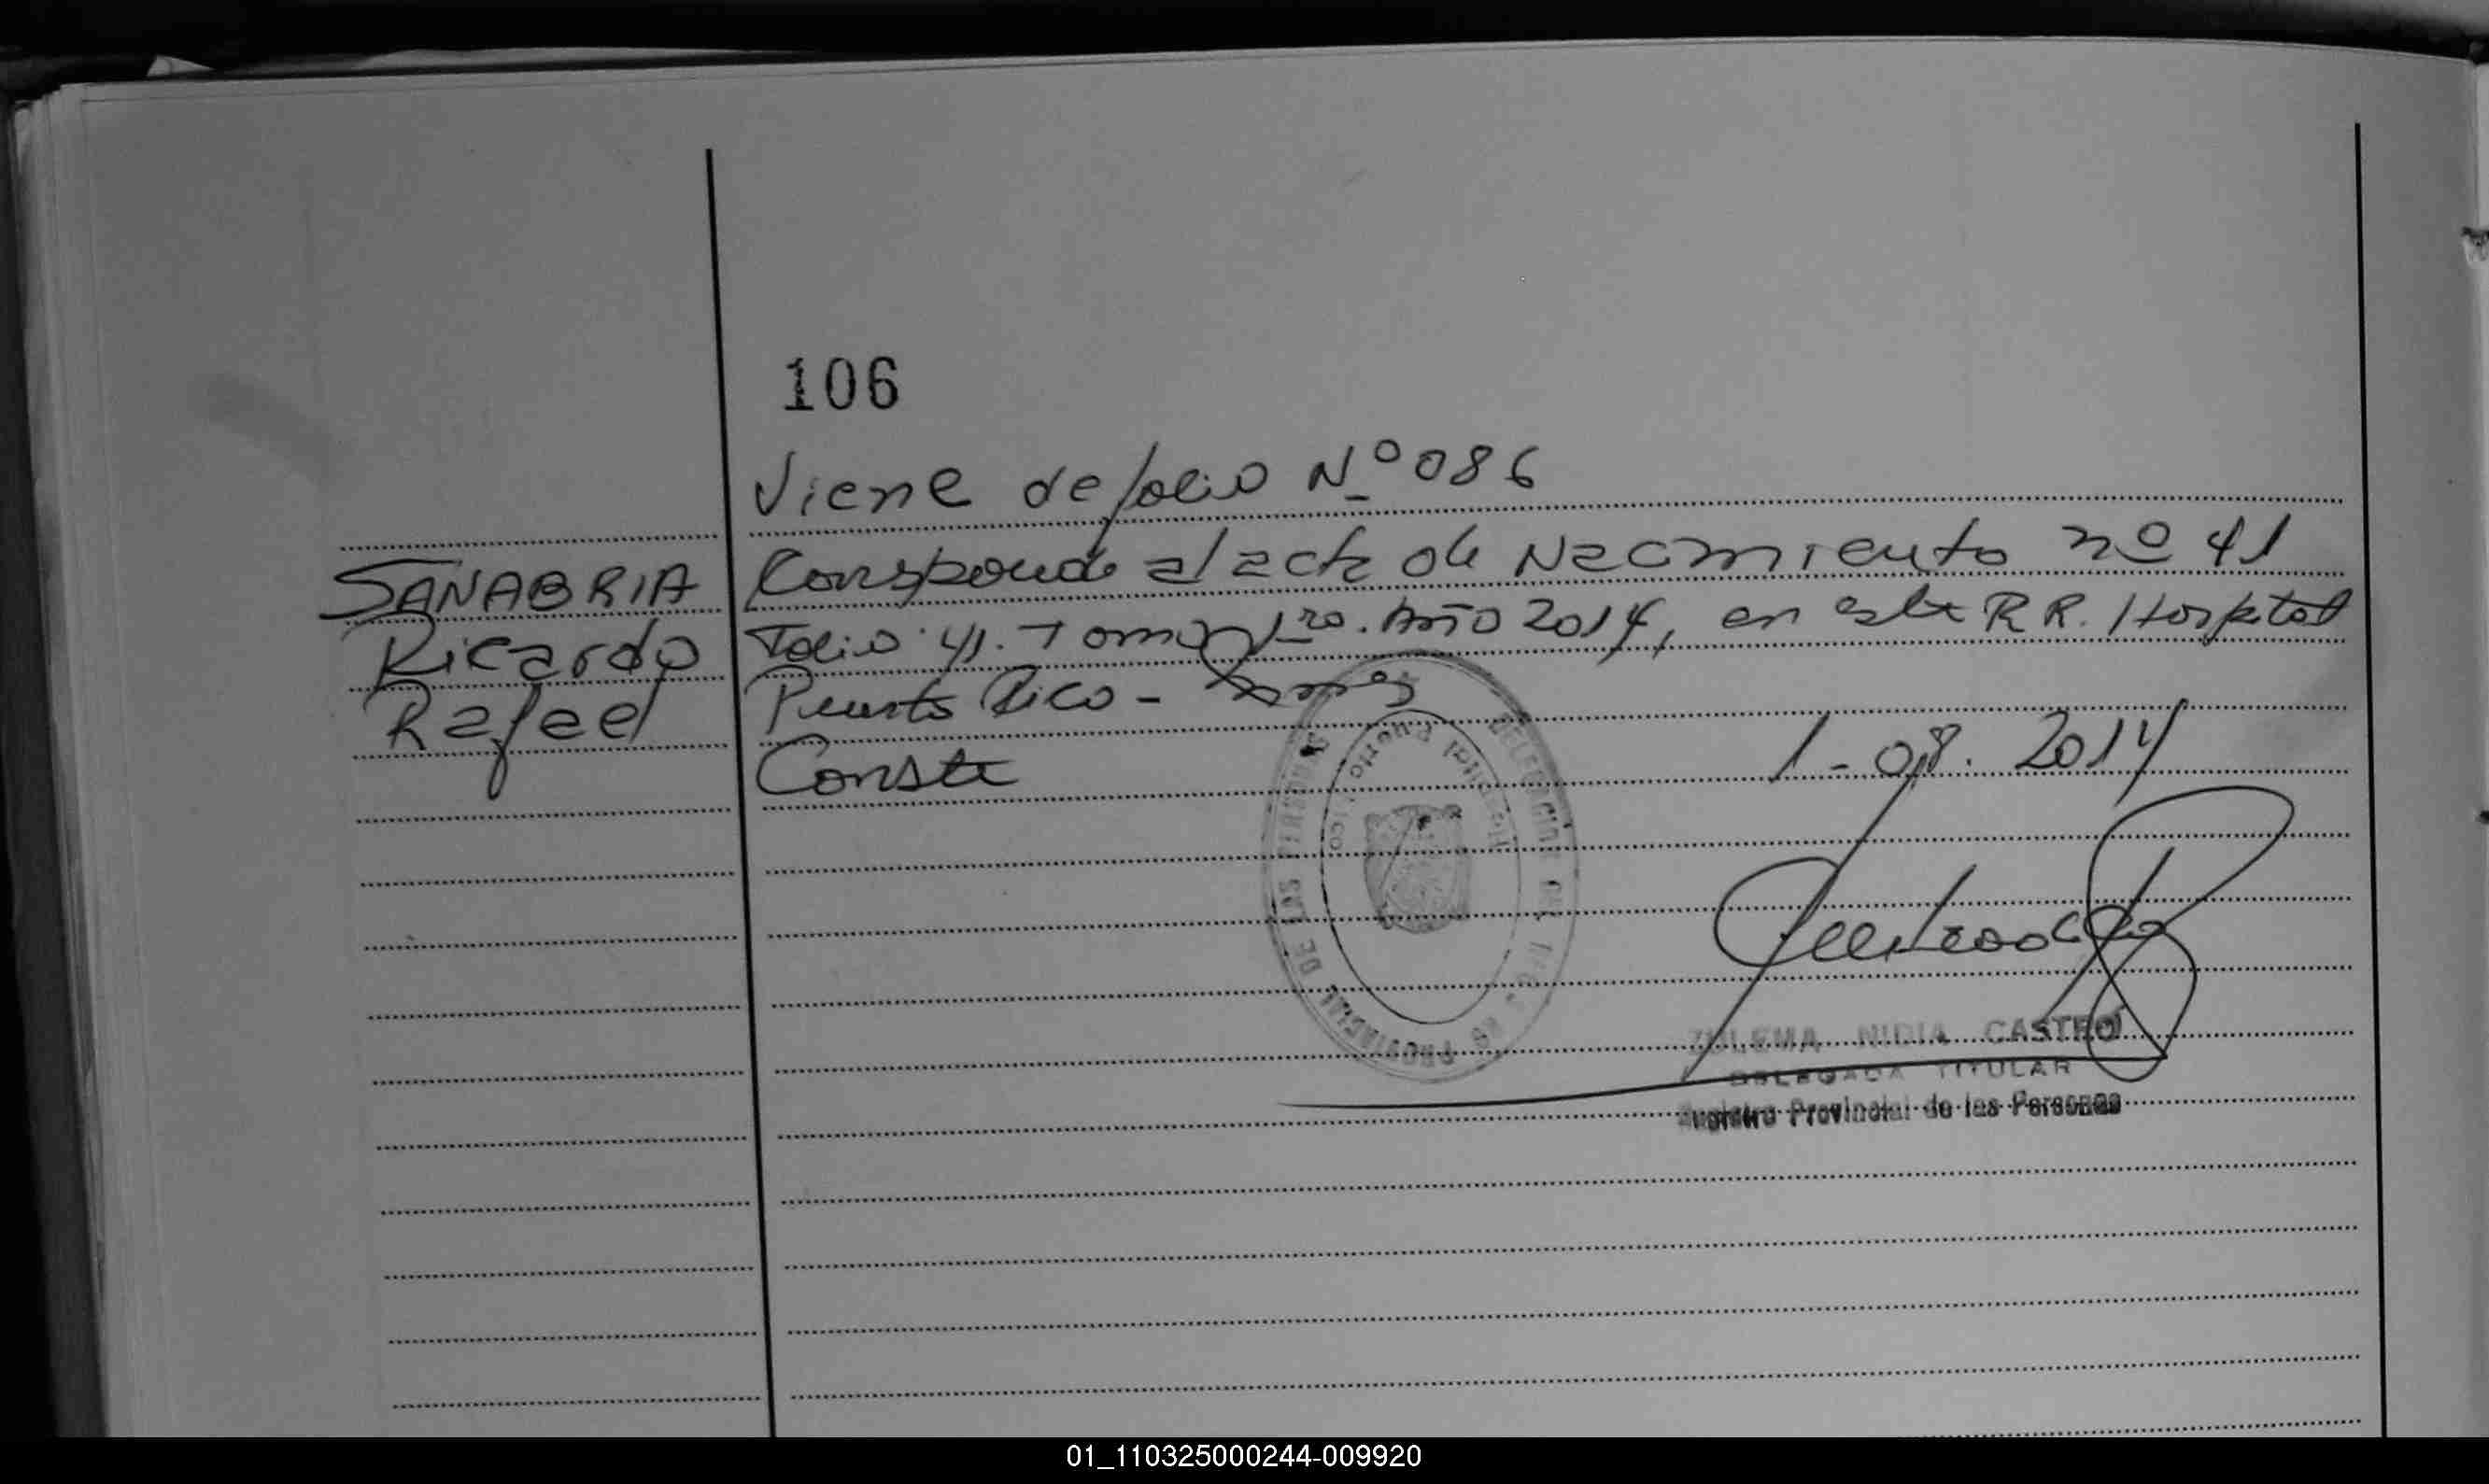 106
Viene de folio Nº 086
SANABRIA
Ricardo
Rafael
Corresponde al acta de Nacimiento nº 41
Folio 41. Tomo 1ro. Año 2014, en esta R R. Hospital
Puerto Rico -
Conste
1-08.2014
DELEGACION
PROVINCIAL DE LAS PERSONAS
Hospital Puerto Rico
ZULEMA NIDIA CASTRO
DELEGADA TITULAR
Registro Provincial de las Personas
01_110325000244-009920